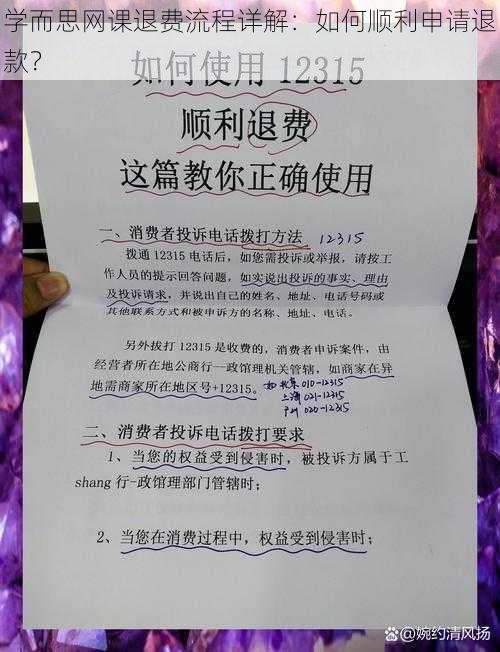 学而思网课退费流程详解：如何顺利申请退
款？
如何使用 12315
顺利退费
这篇教你正确使用
一、消费者投诉电话拨打方法 12315
拨通 12315 电话后，如您需投诉或举报，请按工
作人员的提示回答问题，如实说出投诉的事实、理由
及投诉请求，并说出自己的姓名、地址、电话号码或
其他联系方式和被申诉方的名称、地址、电话。
另外拔打 12315 是收费的，消费者申诉案件，由
经营者所在地公商行一政馆理机关管辖，如商家在异
地需商家所在地区号+12315。如 北京 010-12315
上海 021-12315
广州 020-12315
二、消费者投诉电话拨打要求
1、当您的权益受到侵害时，被投诉方属于工
shang 行-政馆理部门管辖时；
2、当您在消费过程中，权益受到侵害时；
百家号/婉约清风扬